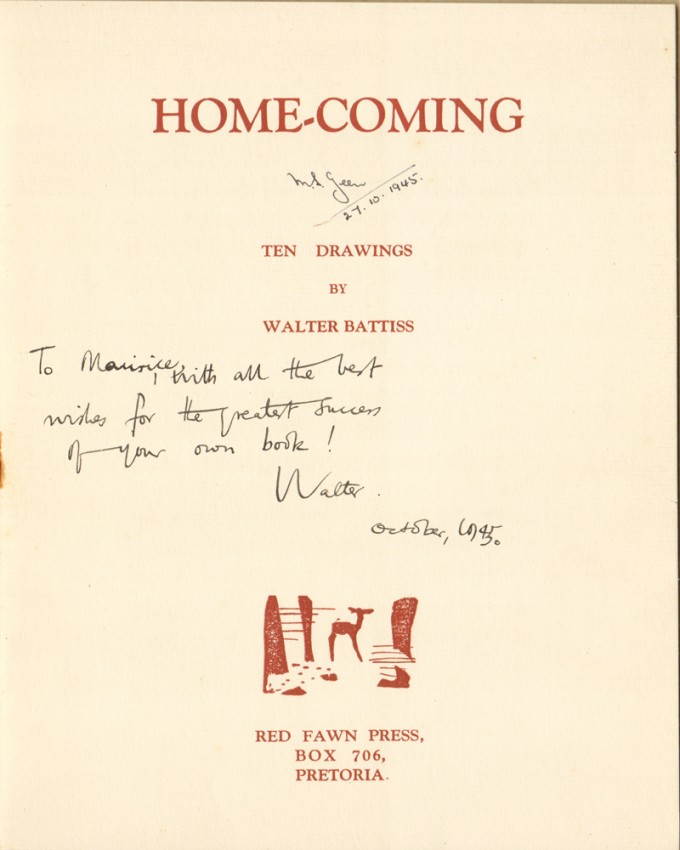 HOME-COMING
M.S. Geen
27.10.1945.
TEN DRAWINGS
BY
WALTER BATTISS
To Maurice, with all the best
wishes for the greatest success
of your own book!
Walter.
October, 1945.
RED FAWN PRESS,
BOX 706,
PRETORIA.